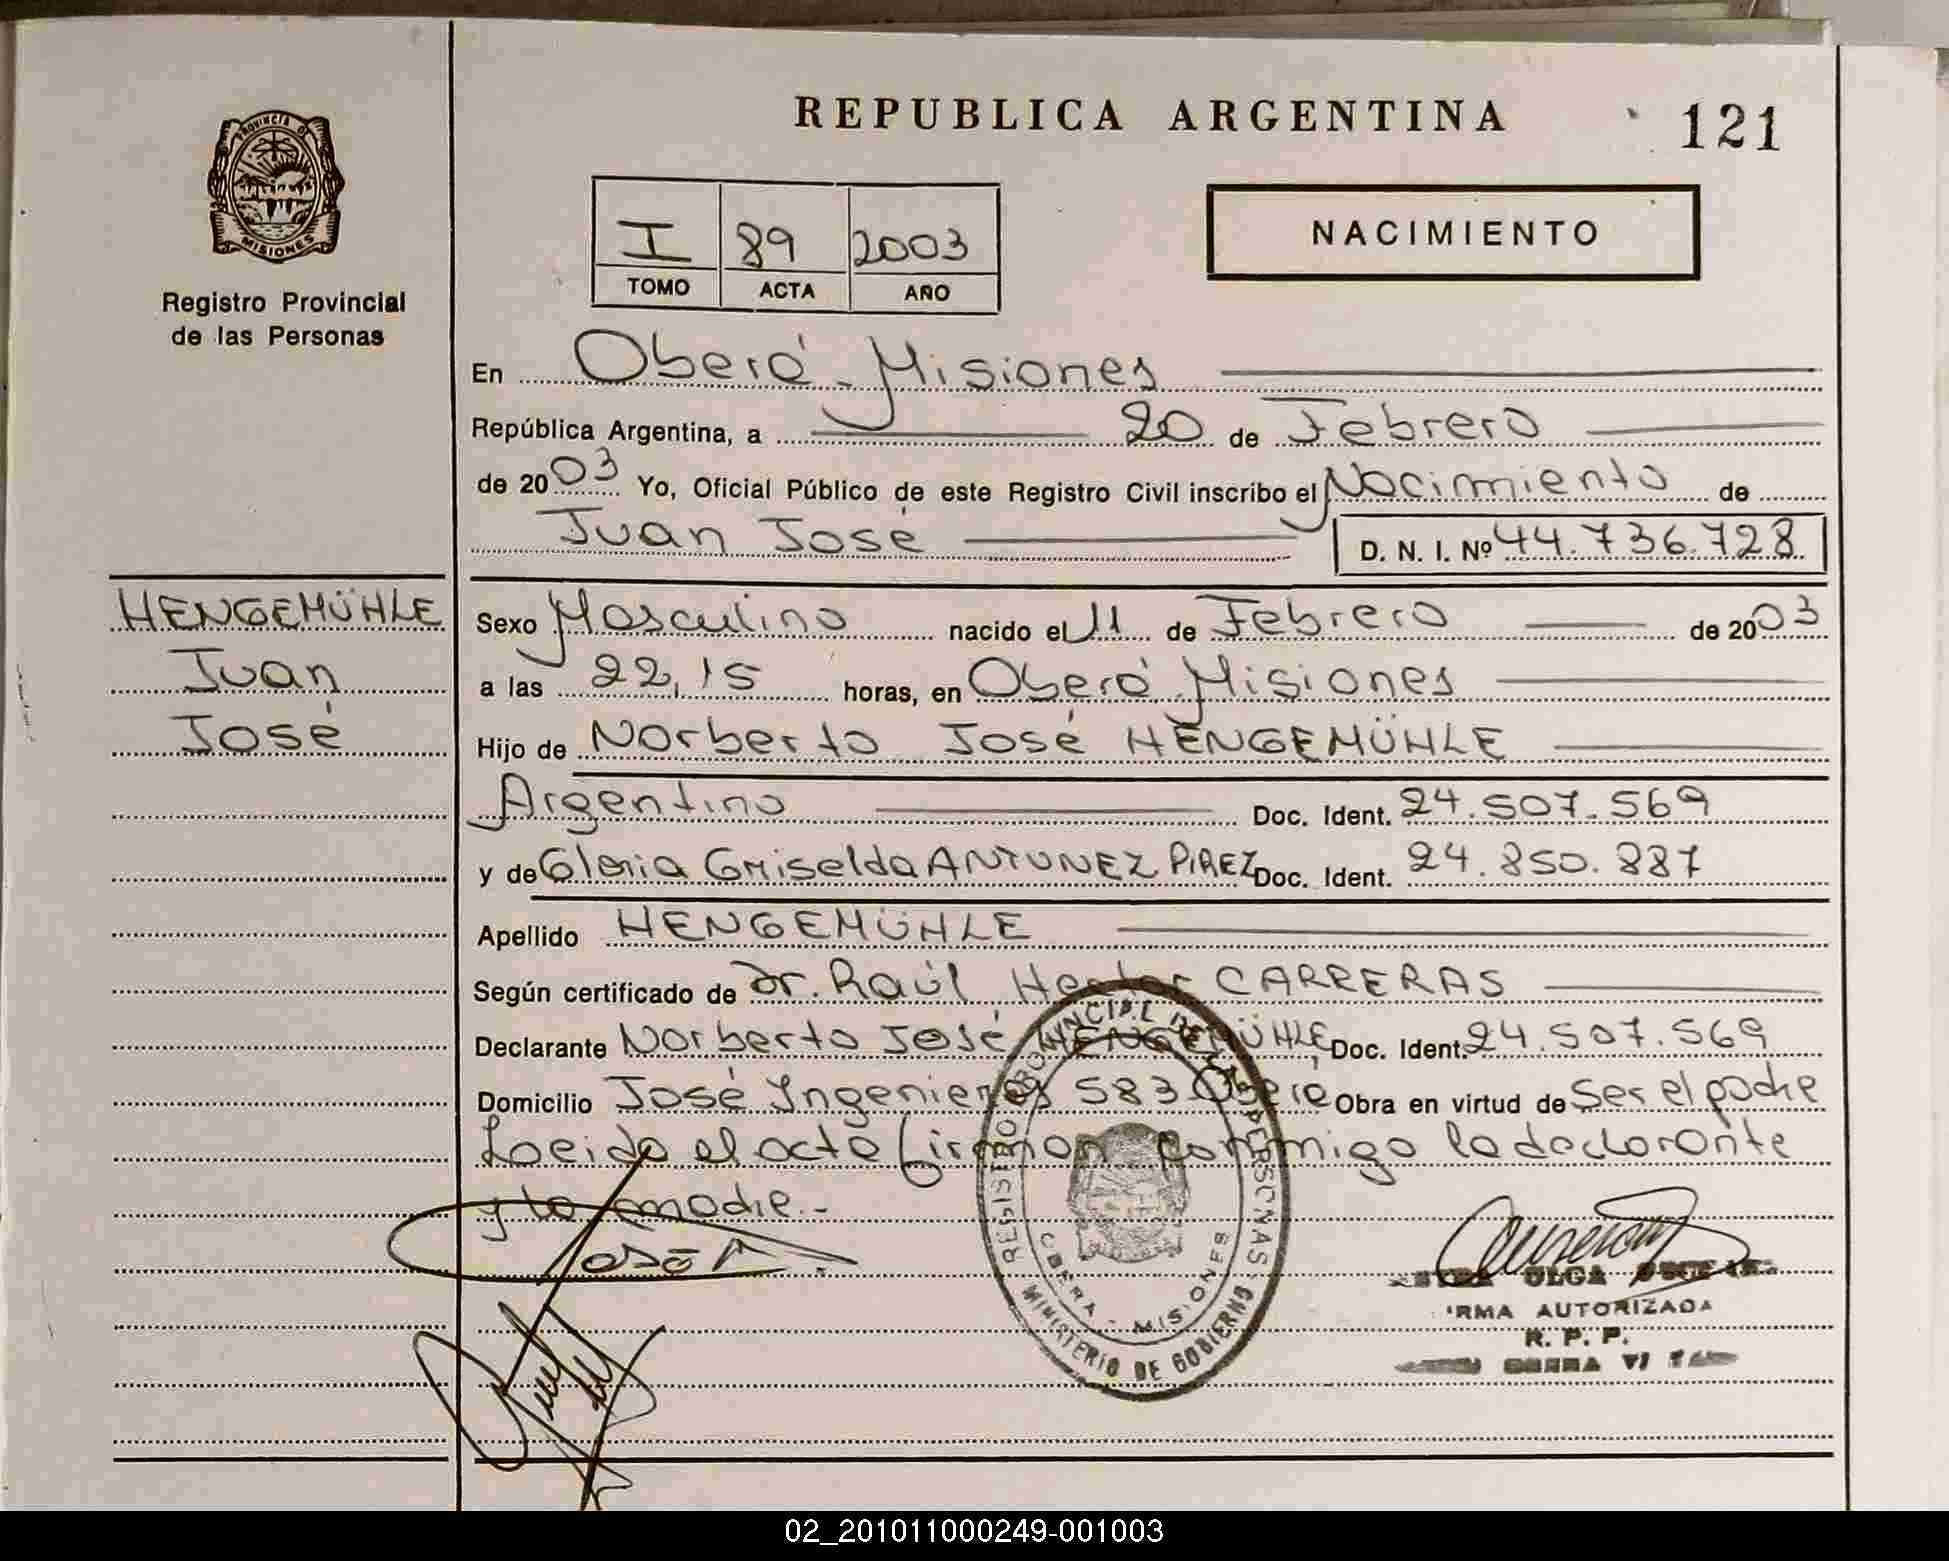 PROVINCIA DE
MISIONES
Registro Provincial
de las Personas
REPUBLICA ARGENTINA
121
I 89 2003
TOMO ACTA AÑO
NACIMIENTO
En Oberá - Misiones
República Argentina, a 20 de Febrero
de 2003 Yo, Oficial Público de este Registro Civil inscribo el Nacimiento de
Juan José D. N. I. Nº 44.736.728
HENGEMÜHLE
Juan
José
Sexo Masculino nacido el 11 de Febrero de 2003
a las 22,15 horas, en Oberá Misiones
Hijo de Norberto José HENGEMÜHLE
Argentino Doc. Ident. 24.507.569
y de Gloria Griselda ANTUNEZ PIREZ Doc. Ident. 24.850.887
Apellido HENGEMÜHLE
Según certificado de Dr. Raúl Hector CARRERAS
Declarante Norberto José HENGEMÜHLE Doc. Ident. 24.507.569
Domicilio José Ingenieros 583 Oberá Obra en virtud de Ser el padre
Leida el acta firman conmigo la declarante
y la madre.-
REGISTRO PROVINCIAL DE LAS PERSONAS
OBERA - MISIONES
MINISTERIO DE GOBIERNO
OLGA
IRMA AUTORIZADA
R. P. P.
02_201011000249-001003